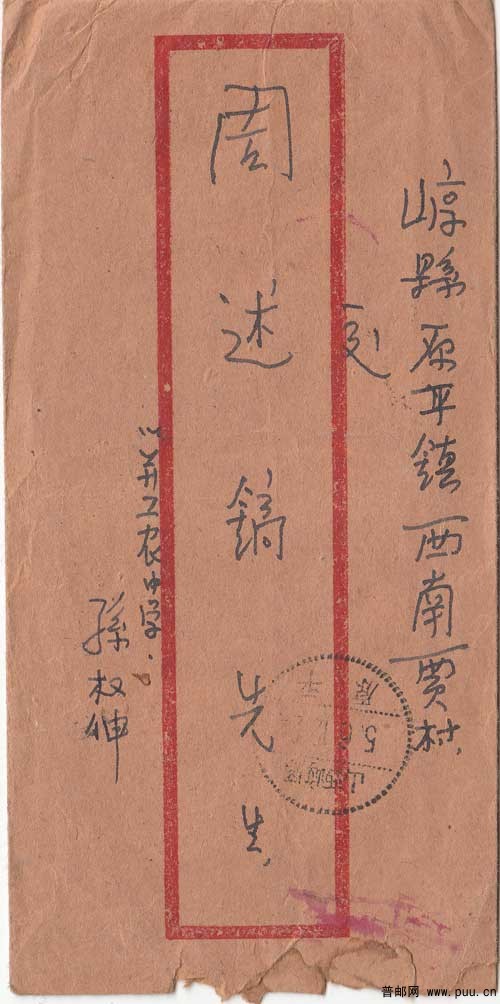 崞縣原平鎮西南賈村
交
周述鎬先生
并工农中学
孫权伸
原平
普邮网 www.puu.cn